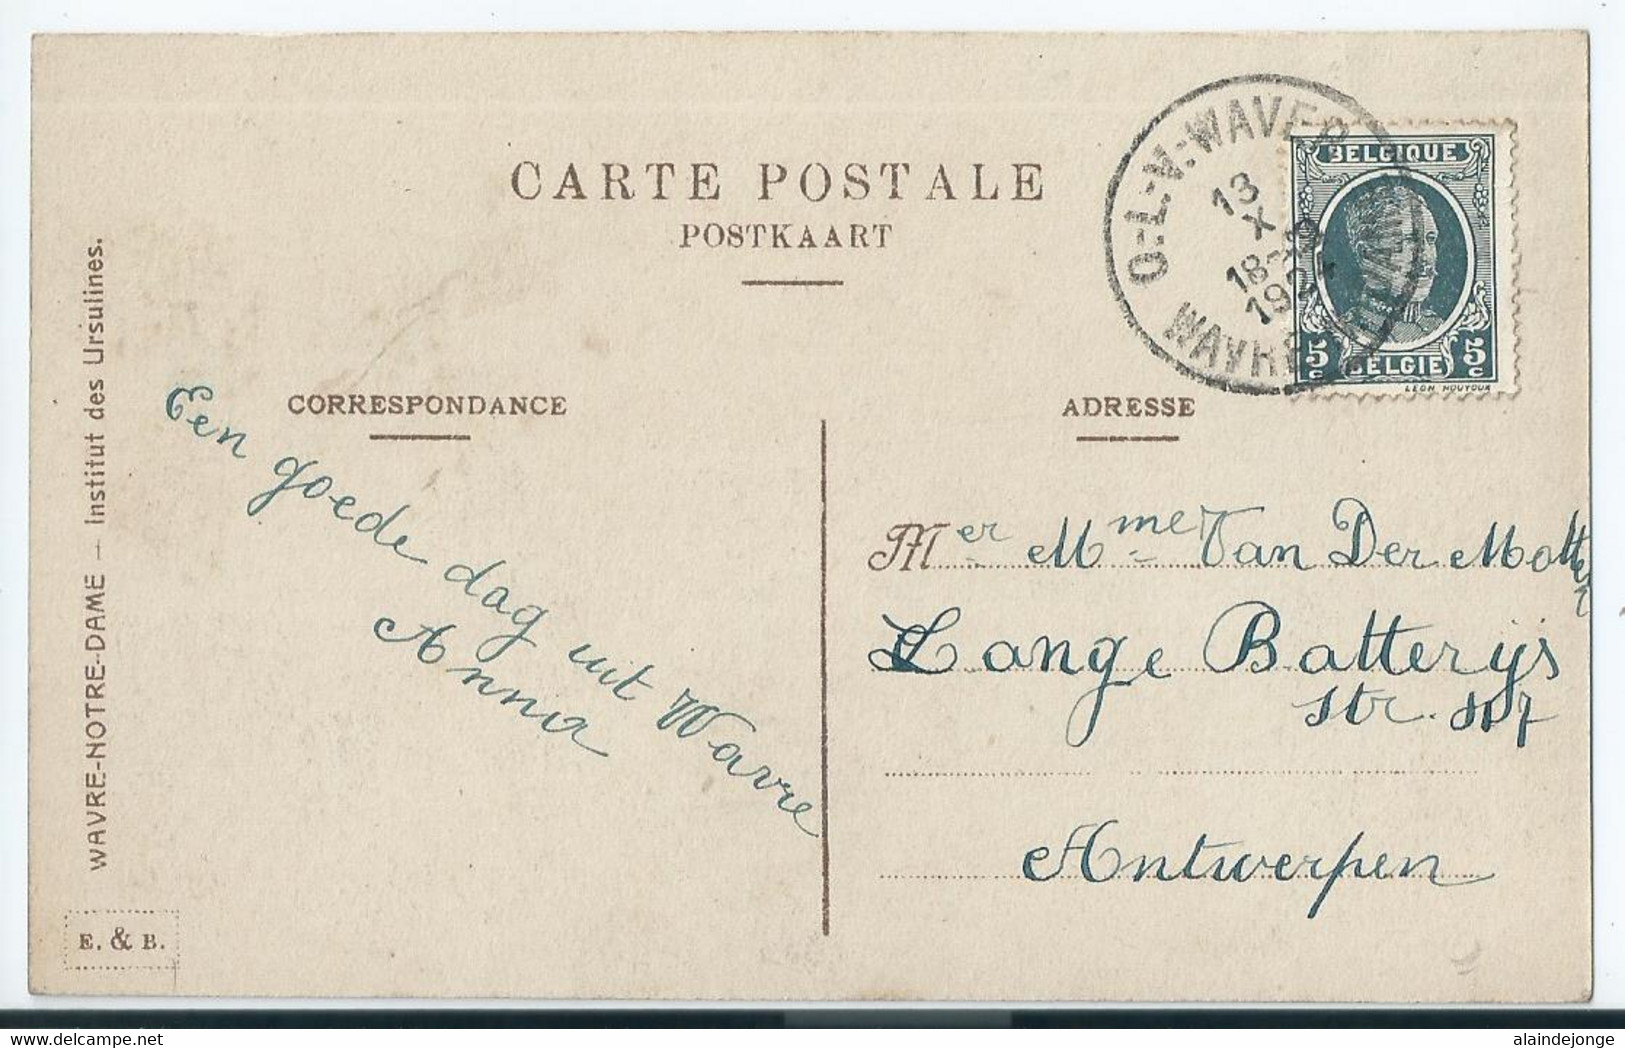 CARTE POSTALE
POSTKAART
O:-L:-V:-WAVER
13
X
18-19
WAVRE
BELGIQUE
5c BELGIE 5c
CORRESPONDANCE
ADRESSE
Een goede dag uit Wavre
Mer Mme Van Der Motten
Lange Batterijs
str.
Antwerpen
WAVRE-NOTRE-DAME — Institut des Ursulines.
E. & B.
alaindejonge